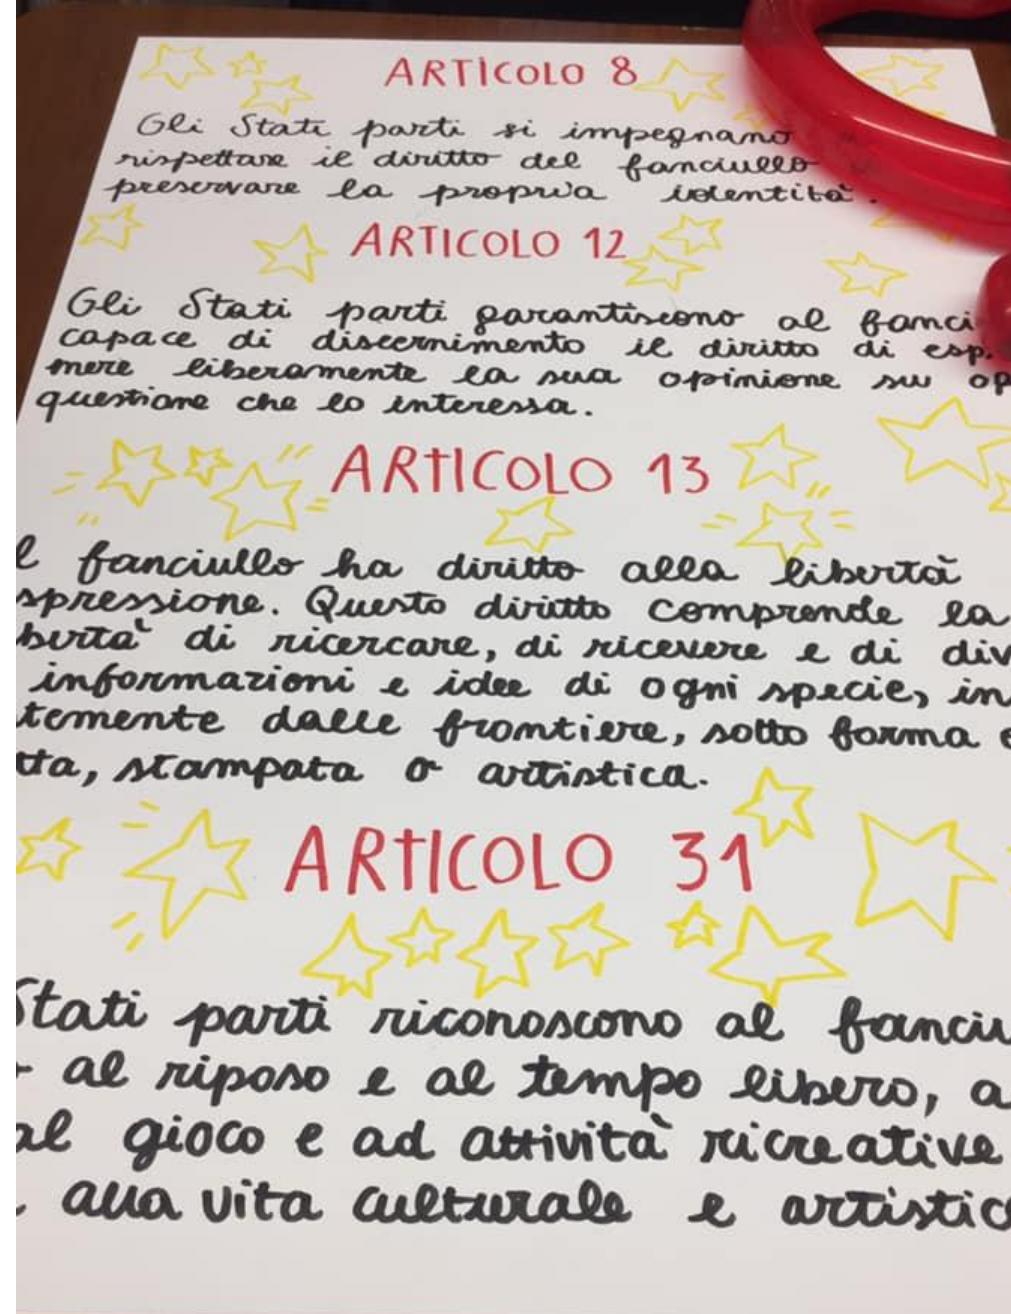 ARTICOLO 8
Gli Stati parti si impegnano
rispettare il diritto del fanciullo
preservare la propria identità.
ARTICOLO 12
Gli Stati parti garantiscono al fanci
capace di discernimento il diritto di esp
mere liberamente la sua opinione su og
questione che lo interessa.
ARTICOLO 13
l fanciullo ha diritto alla libertà
spressione. Questo diritto comprende la
bertà di ricercare, di ricevere e di div
informazioni e idee di ogni specie, in
temente dalle frontiere, sotto forma
tta, stampata o artistica.
ARTICOLO 31
Stati parti riconoscono al fanciu
al riposo e al tempo libero, a
al gioco e ad attività ricreative
alla vita culturale e artistic